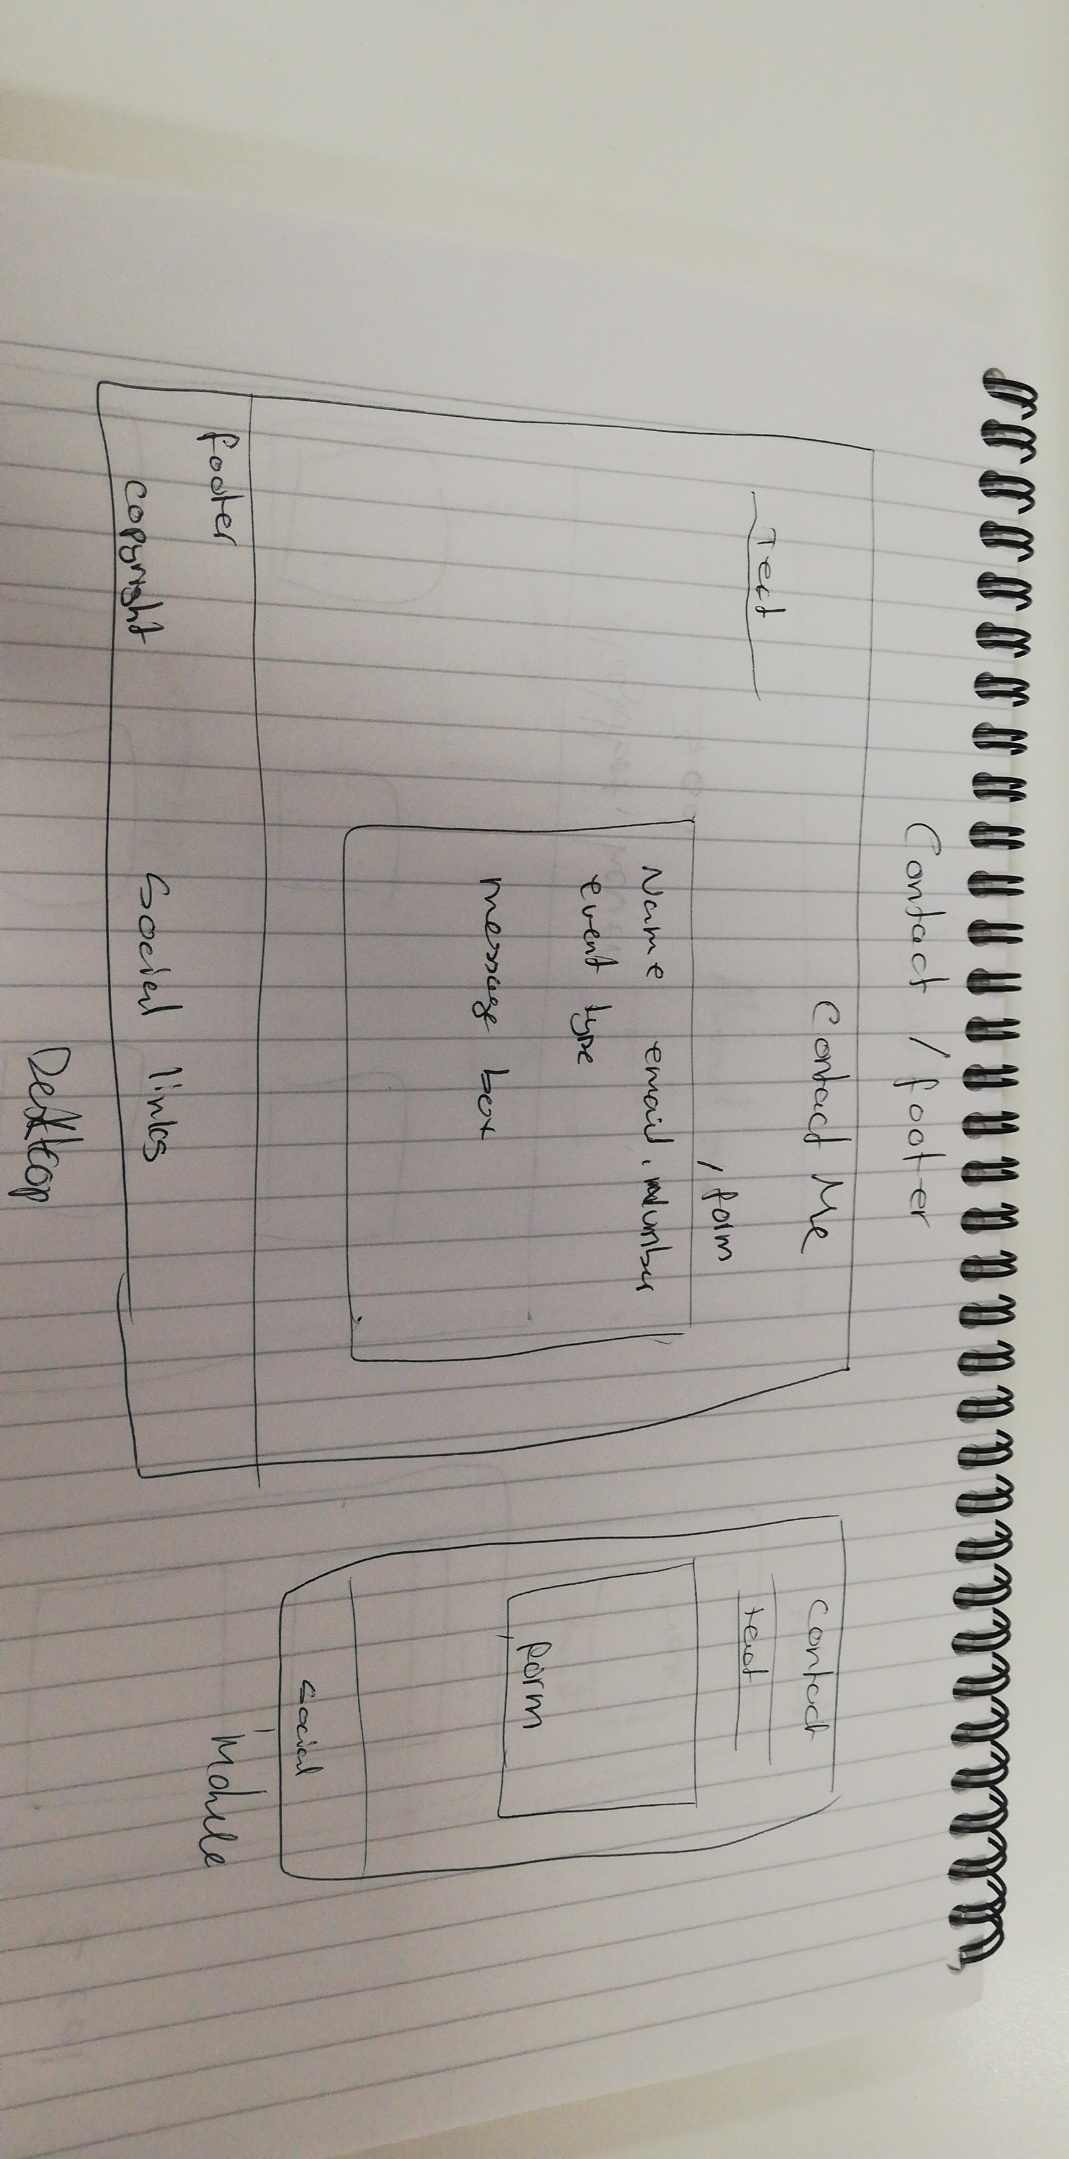 Contact / footer
Contact Me
Text
/ form
Name email, number
event type
message box
footer
copyright
Social links
Desktop
Contact
text
form
social
Mobile